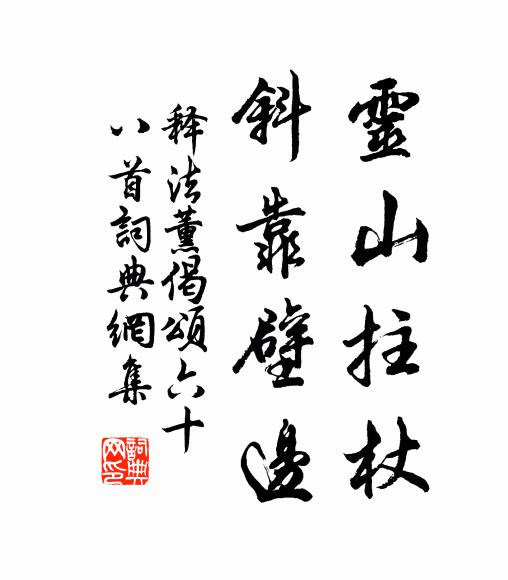 靈山拄杖
斜靠壁邊
释法薰偈頌六十
八首詞典網集
詞典
网印